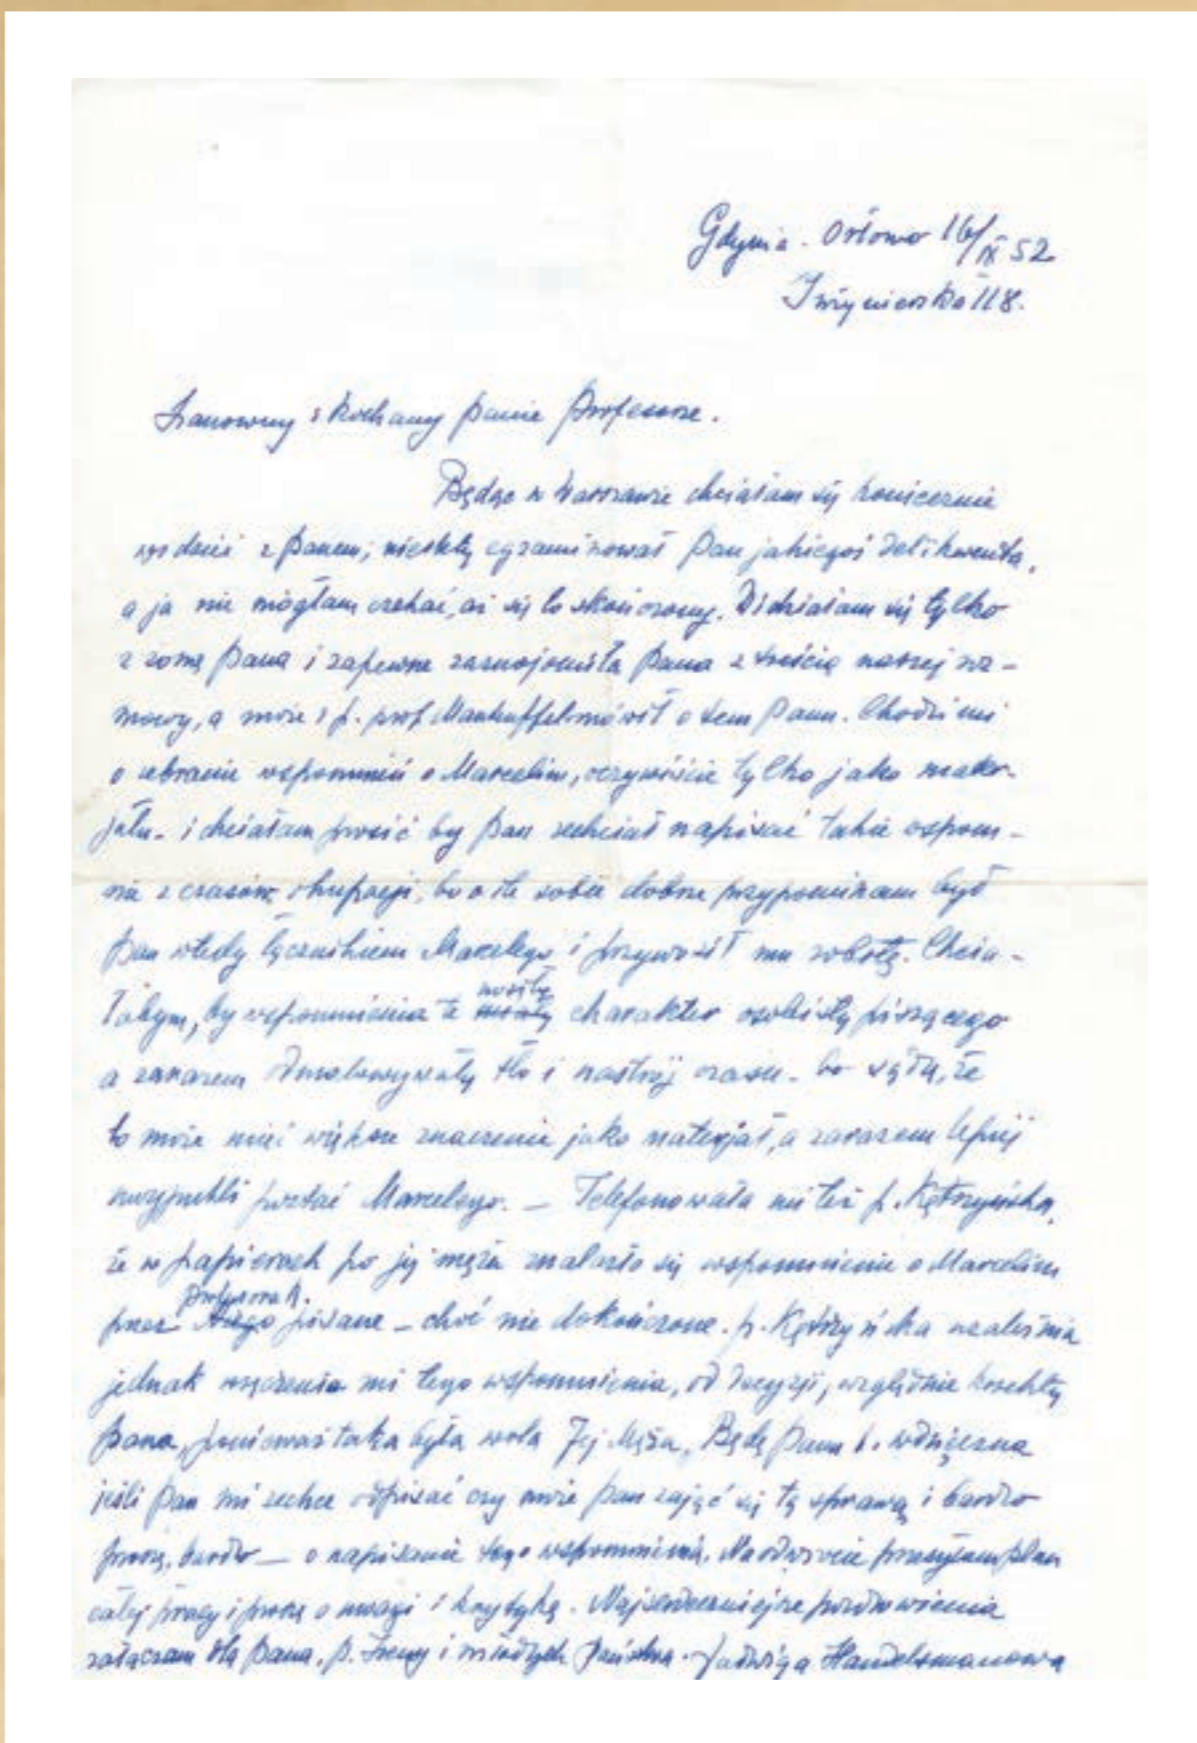 Gdynia - Orłowo 16/IX 52
Inżynierska 118.
Szanowny i Kochany Panie Profesorze.
Będąc w Warszawie chciałam się koniecznie
widzieć z Panem, niestety egzaminował Pan jakiegoś delikwenta,
a ja nie mogłam czekać, aż się to skończy. Widziałam się tylko
z żoną Pana i zapewne zaznajomiła Pana z treścią naszej roz-
mowy, a może i p. prof Manteuffel mówił o tem Panu. Chodzi mi
o zebranie wspomnień o Marcelim, oczywiście tylko jako mater-
jału - i chciałam prosić by Pan zechciał napisać takie wspom-
nie z czasów okupacji, bo o ile sobie dobrze przypominam był
Pan wtedy łącznikiem Marcelego i przywoził mu robotę. Chcia-
łabym, by wspomnienia te nosiły charakter osobisty piszącego
a zarazem odmalowywały tło i nastrój czasu - bo sądzę, że
to może mieć większe znaczenie jako materjał, a zarazem lepiej
uwypukli postać Marcelego. — Telefonowała mi też p. Kętrzyńska,
że w papierach po jej mężu znalazło się wspomnienie o Marcelim
przez Profesora A. pisane – choć nie dokończone. p. Kętrzyńska uzależnia
jednak wręczenie mi tego wspomnienia, od decyzji, względnie korekty
Pana, ponieważ taka była wola Jej Męża. Będę Panu b. wdzięczna
jeśli Pan mi zechce odpisać czy może Pan zająć się tą sprawą i bardzo
proszę, bardzo — o napisanie tego wspomnienia. Na odwrocie przesyłam plan
całej pracy i proszę o uwagi i krytykę. Najserdeczniejsze pozdrowienia
załączam dla Pana, p. Ireny i młodych Państwa. Jadwiga Handelsmanowa